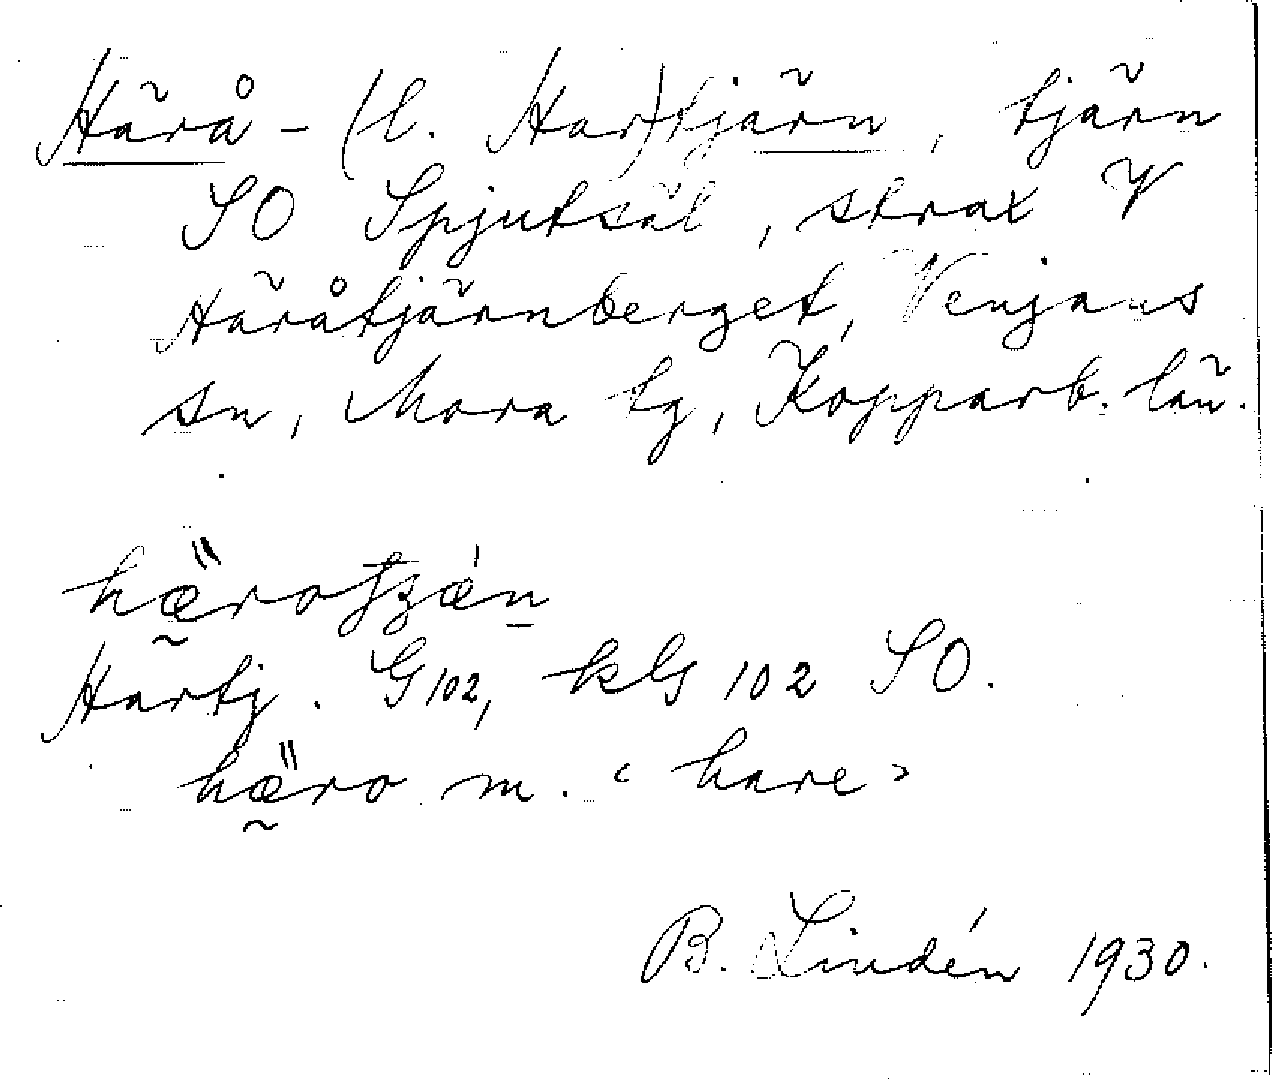 Härå- (l. Har)tjärn, tjärn
SO Spjutsäl, strax V
Häråtjärnberget, Venjans
sn, Mora tg, Kopparb. län.
hærotʒæn
Hartj. G 102, kls 102 SO.
hæro m. ‹ hare ›
B. Lindén 1930.